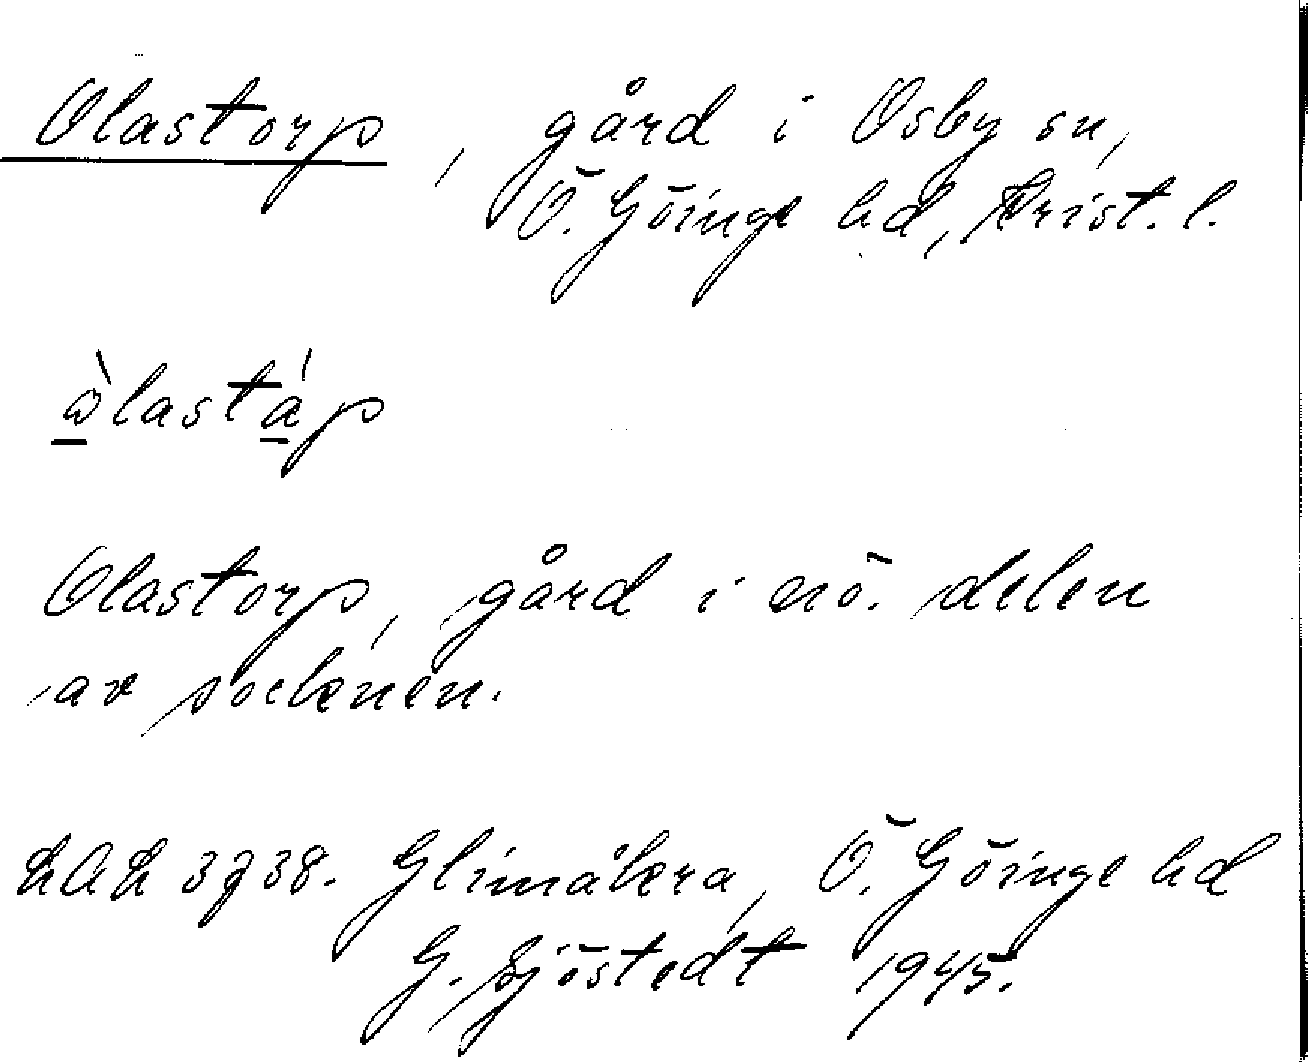 Olastorp, gård i Osby sn,
Ö. Göinge hd, Krist. l.
ὼlastáp
Olastorp, gård i nö. delen
av socknen.
LAL 3738. Glimåkra, Ö. Göinge hd
G. Sjöstedt 1945.